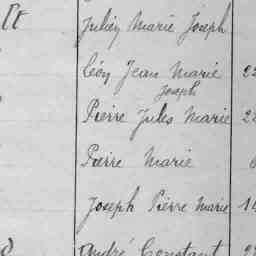 Julien Marie Joseph
Léon Jean Marie
Joseph
Pierre Jules Marie
Pierre Marie
Joseph Pierre Marie
André Constant